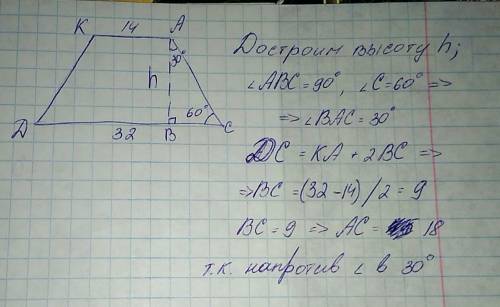 К 14 А
30°
h
60°
Д 32 В С
Достроим высоту h;
∠ABC = 90°, ∠C = 60° =>
=> ∠BAC = 30°
DC = KA + 2BC =>
=> BC = (32 - 14) / 2 = 9
BC = 9 => AC = 18
т.к. напротив ∠ в 30°